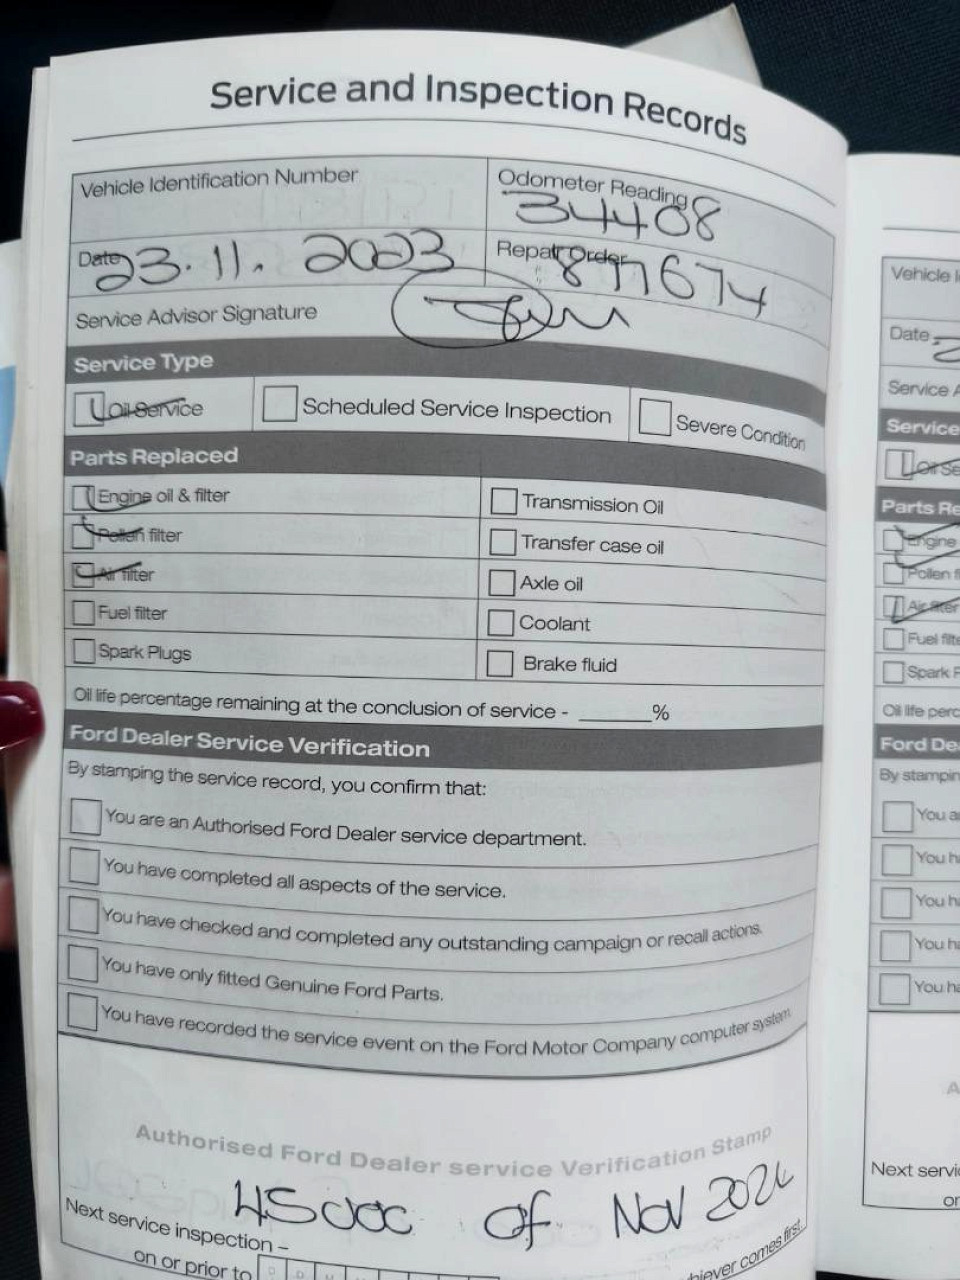 Service and Inspection Records
Vehicle Identification Number
Odometer Reading
34408
Date 23.11.2023
Repair Order
Service Advisor Signature
Service Type
Oil Service
Scheduled Service Inspection
Severe Condition
Parts Replaced
Engine oil & filter
Transmission Oil
Pollen filter
Transfer case oil
Air filter
Axle oil
Fuel filter
Coolant
Spark Plugs
Brake fluid
Oil life percentage remaining at the conclusion of service - ______%
Ford Dealer Service Verification
By stamping the service record, you confirm that:
You are an Authorised Ford Dealer service department.
You have completed all aspects of the service.
You have checked and completed any outstanding campaign or recall actions.
You have only fitted Genuine Ford Parts.
You have recorded the service event on the Ford Motor Company computer system.
Authorised Ford Dealer service Verification Stamp
45000 of Nov 2024
Next service inspection –
on or prior to
comes first.
Vehicle
Date
Service A
Service
Oil Se
Parts Re
Engine
Pollen f
Air filter
Fuel filte
Spark P
Oil life perc
Ford De
By stampin
You a
You h
You ha
You ha
You ha
A
Next servi
or